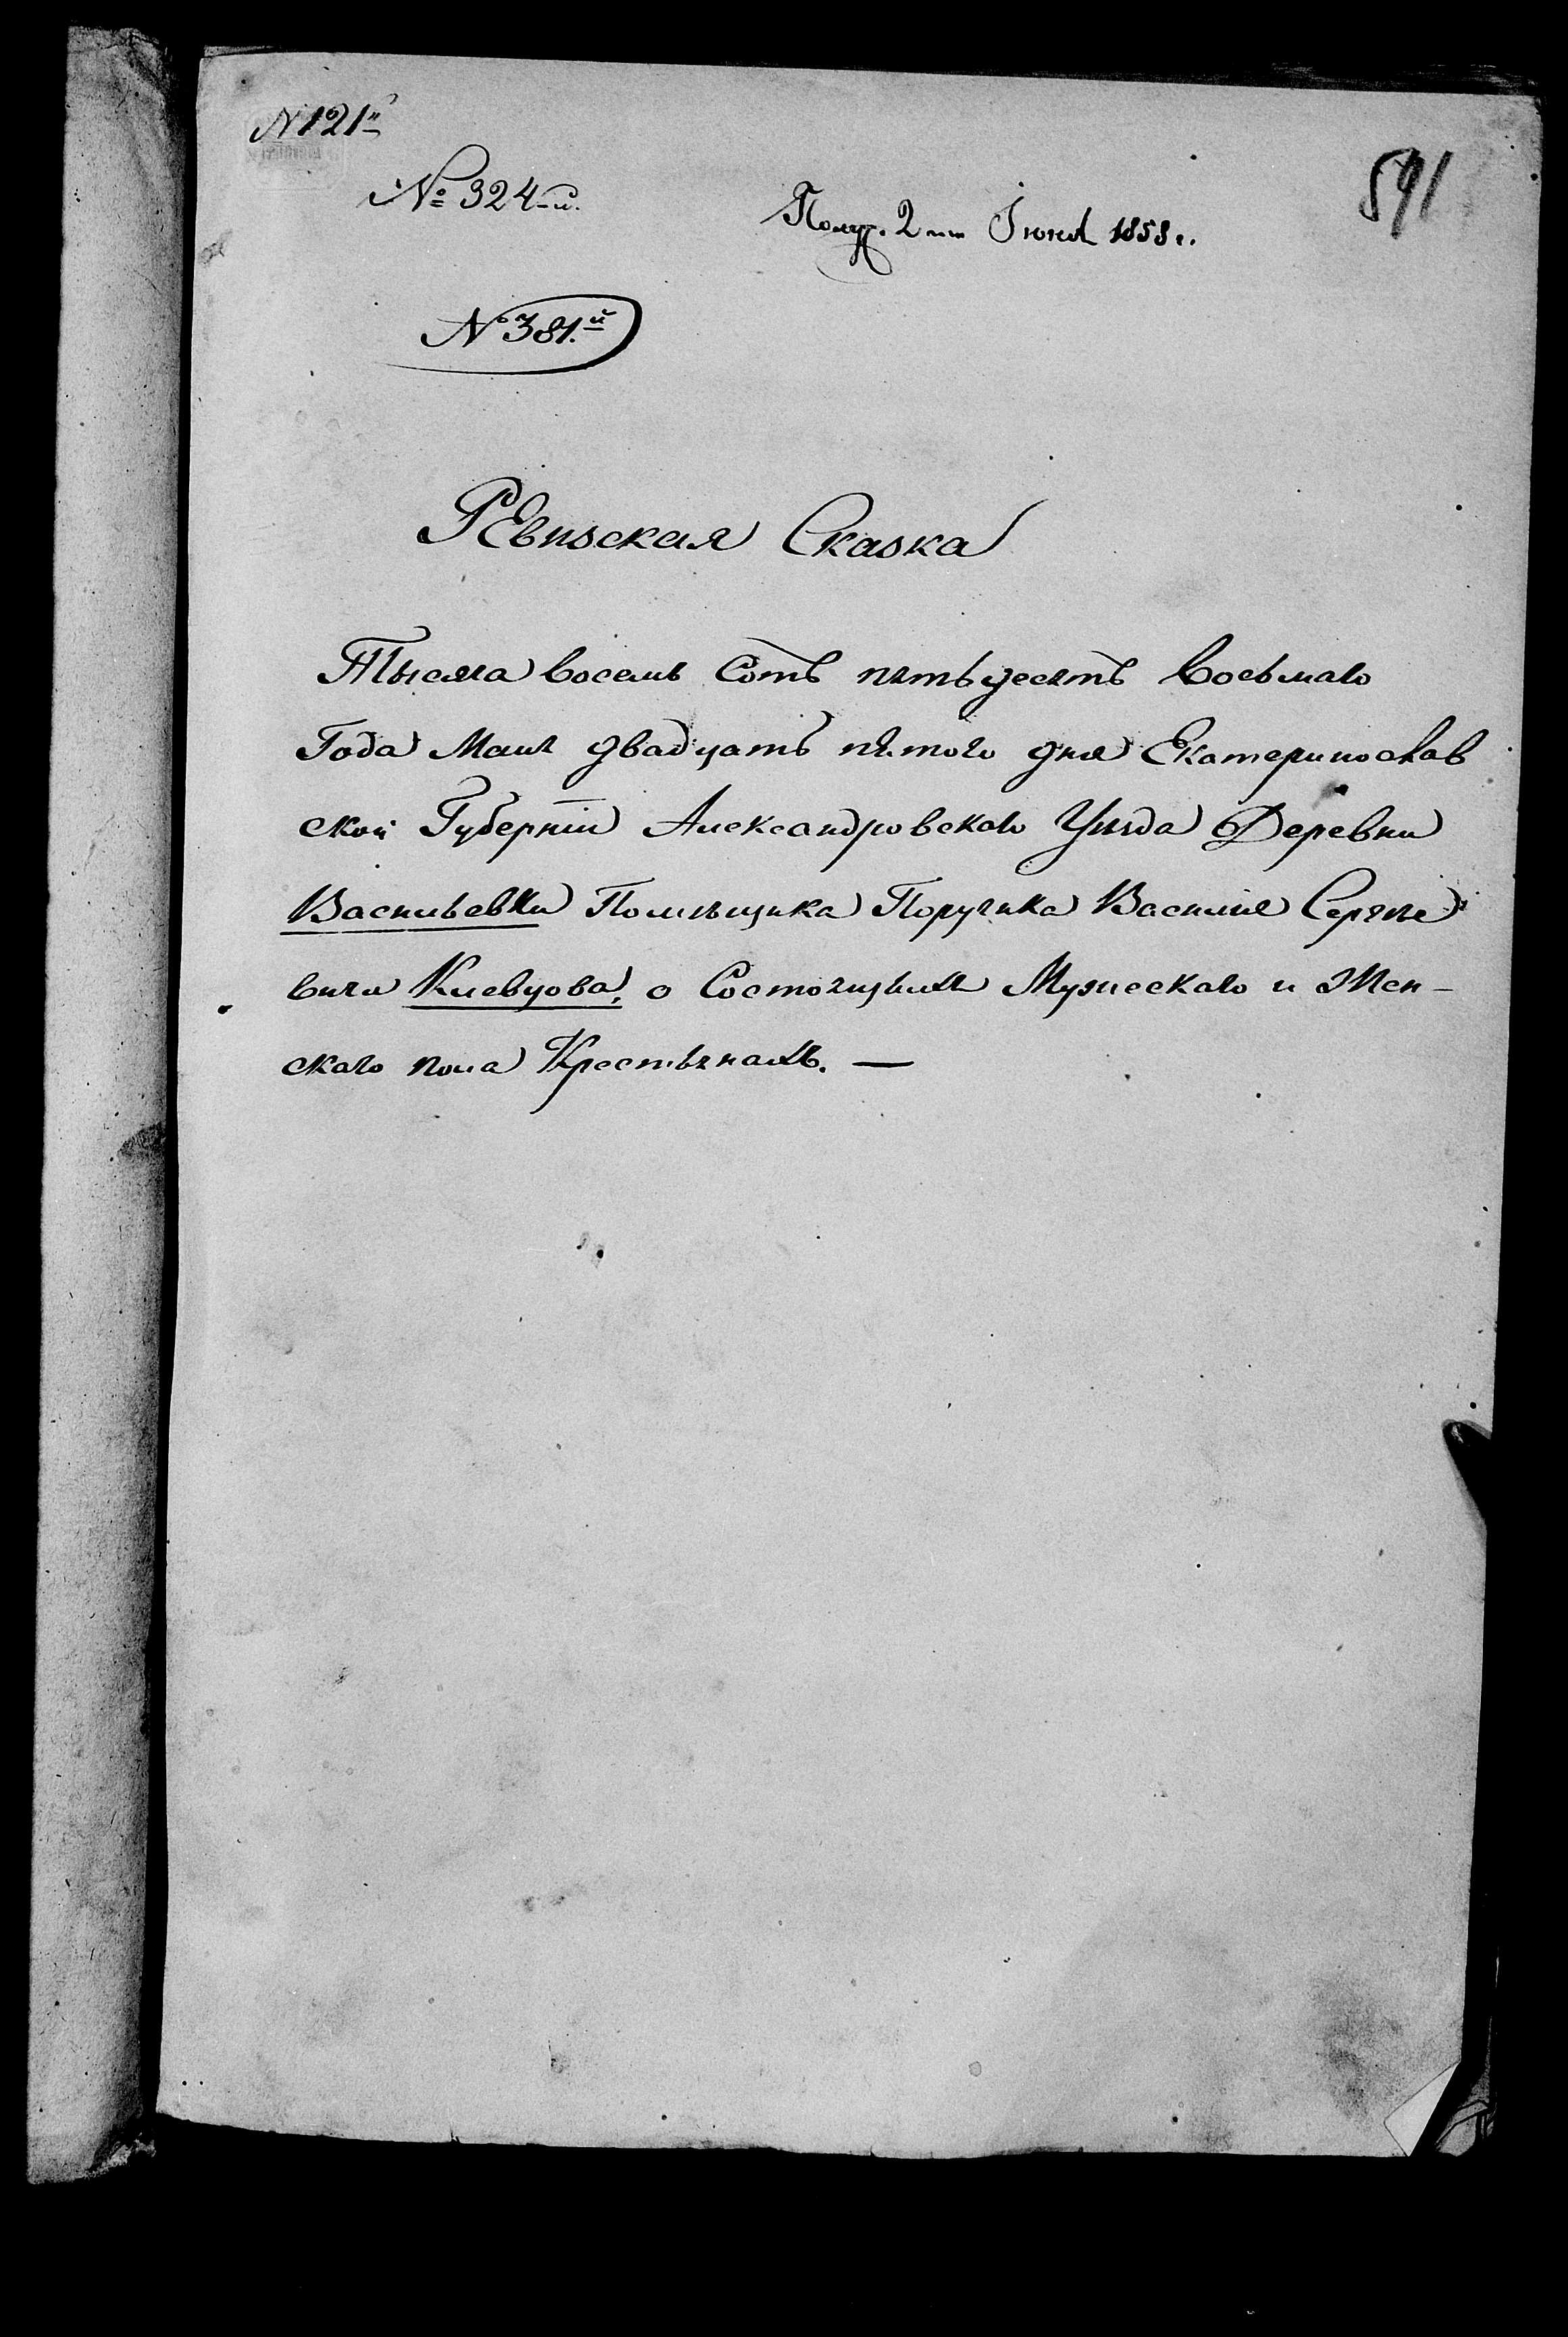 N 121й
591
№ 324-й.
Получ. 2 Іюня 1858 г.
N 381.й
Ревизская Сказка
Тысяча восемь сотъ пятьдесятъ восьмаго
Года Маия двадцать пятого дня Екатеринослав
ской Губерніи Александровскаго Уѣзда Деревни
Васильевки Помѣщика Поручика Василія Сергѣе
вича Клевцова, о Состоящихъ Мужескаго и Жен-
скаго пола Крестьянахъ. —